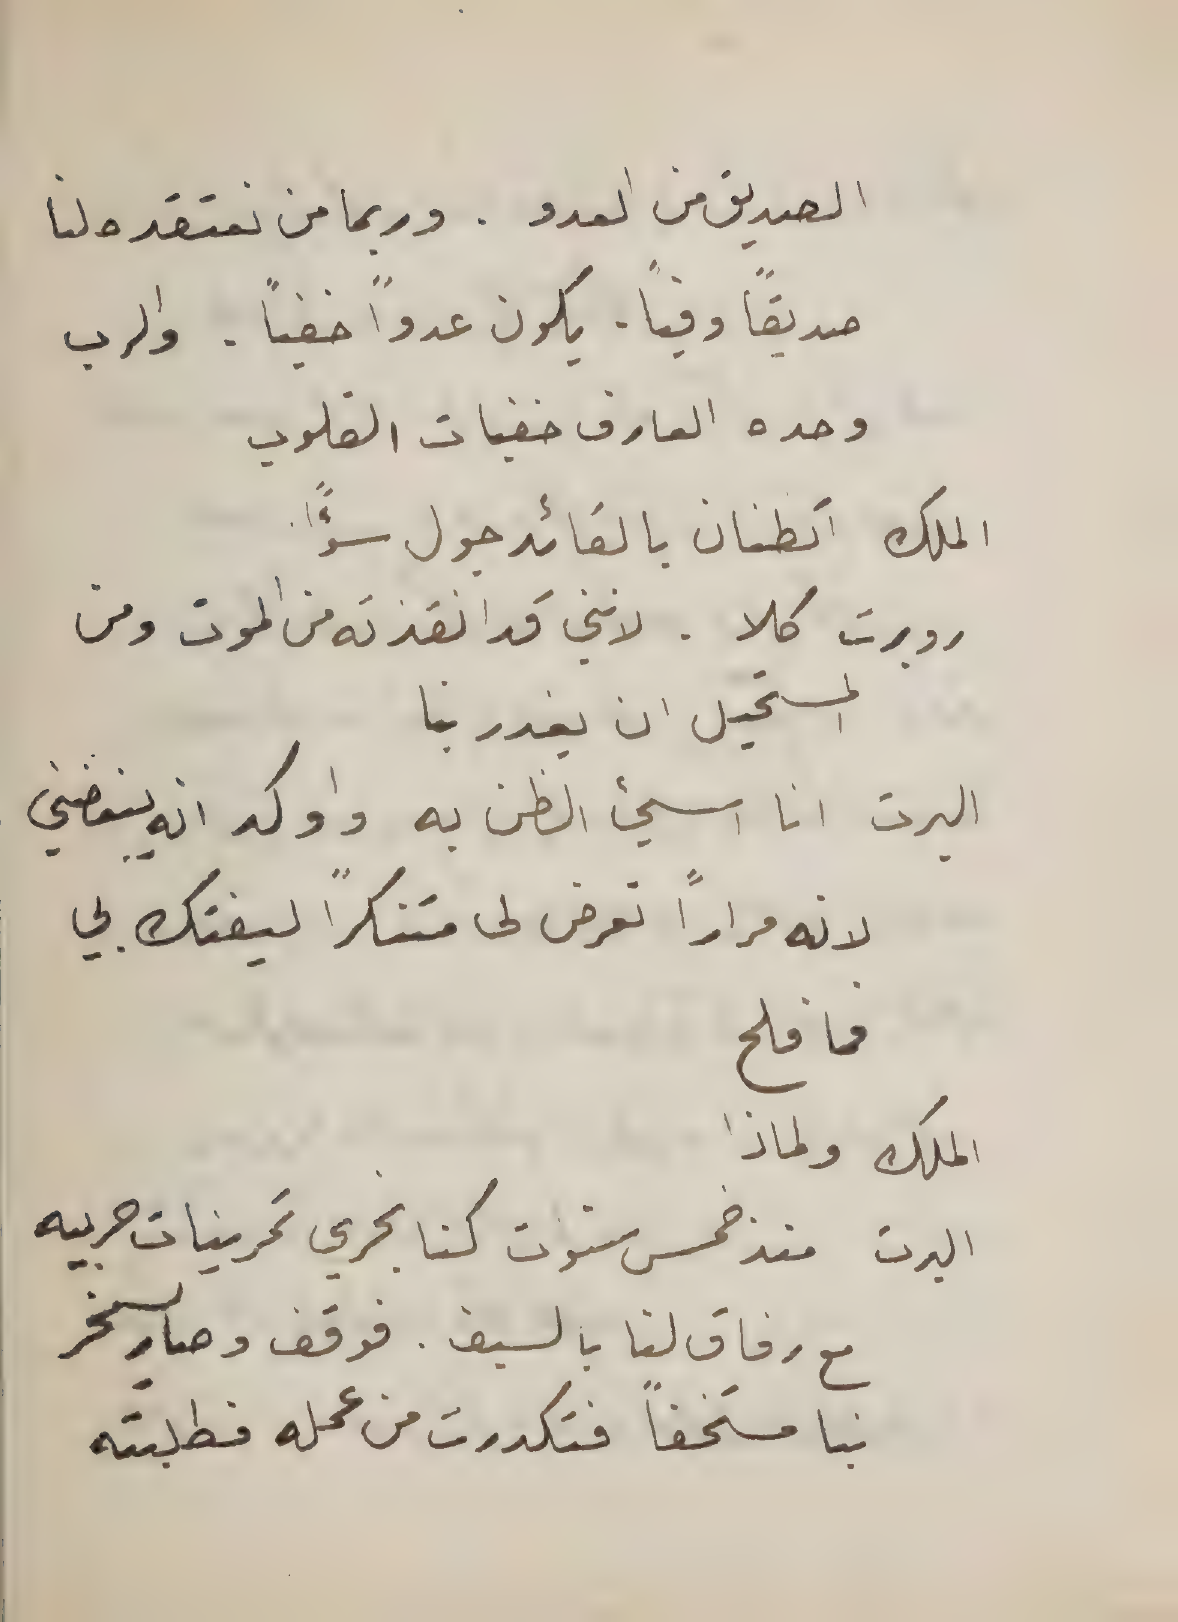 الصديق من العدو . وربما من نعتقده لنا
صديقاً وفياً . يكون عدواً خفياً . والرب
وحده العارف خفيات القلوب
الملك اتظنان بالقائد جول سوًّا .
روبرت كلا . لانني قد انقذته من الموت ومن
المستحيل ان يغدر بنا
البرت انا اسيئ الظن به واوكد انه يبغضني
لانه مراراً تعرض لى متنكراً ليفتك بي
فما فلح
الملك ولماذا
البرت منذ خمس سنوت كنا نجري تمرينات حربيه
مع رفاق لنا بالسيف . فوقف وصار يسخر
بنا مستخفاً فتكدرت من عمله فطلبته